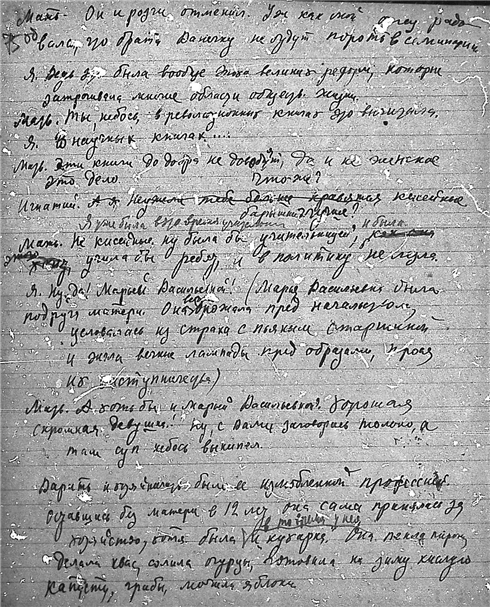 Мать. Он и розги отменил. Уж как мой отец радо
вался, что брата Ванечку не будут пороть в семинарии
Я. Ведь это была вообще эпоха великих реформ, которые
затронули многие области обществ. жизни.
Мать. Ты, небось, в революционных книгах это вычитала.
Я. В научных книгах....
Мать. Эти книги до добра не доведут, да и не женское
это дело. Что же?
Игнатий. А я неужели тебе больше нравятся кисейные
барышни
Я уже была в это время учительницей
Мать. Не кисейные, ну была бы учительницей, и была
учила бы ребят, и в политику не лезла.
Я. Ну да! Марьей Васильевной! (Марья Васильевна была
подруга матери. Она дрожала пред начальством,
целовалась из страха с пьяным старшиной
и жгла вечные лампады пред образами, прося
их заступничества)
Мать. А хотя бы и Марьей Васильевной. Хорошая
скромная девушка! Ну, с вами заговорись только, а
там суп небось выкипел.
Варить и хозяйничать было ее излюбленной профессией.
Оставшись без матери в 12 лет, она сама принялась за
хозяйство, хотя была в то время у нее и кухарка. Она пекла пироги,
делала квас, солила огурцы, готовила на зиму кислую
капусту, грибы, яблоки